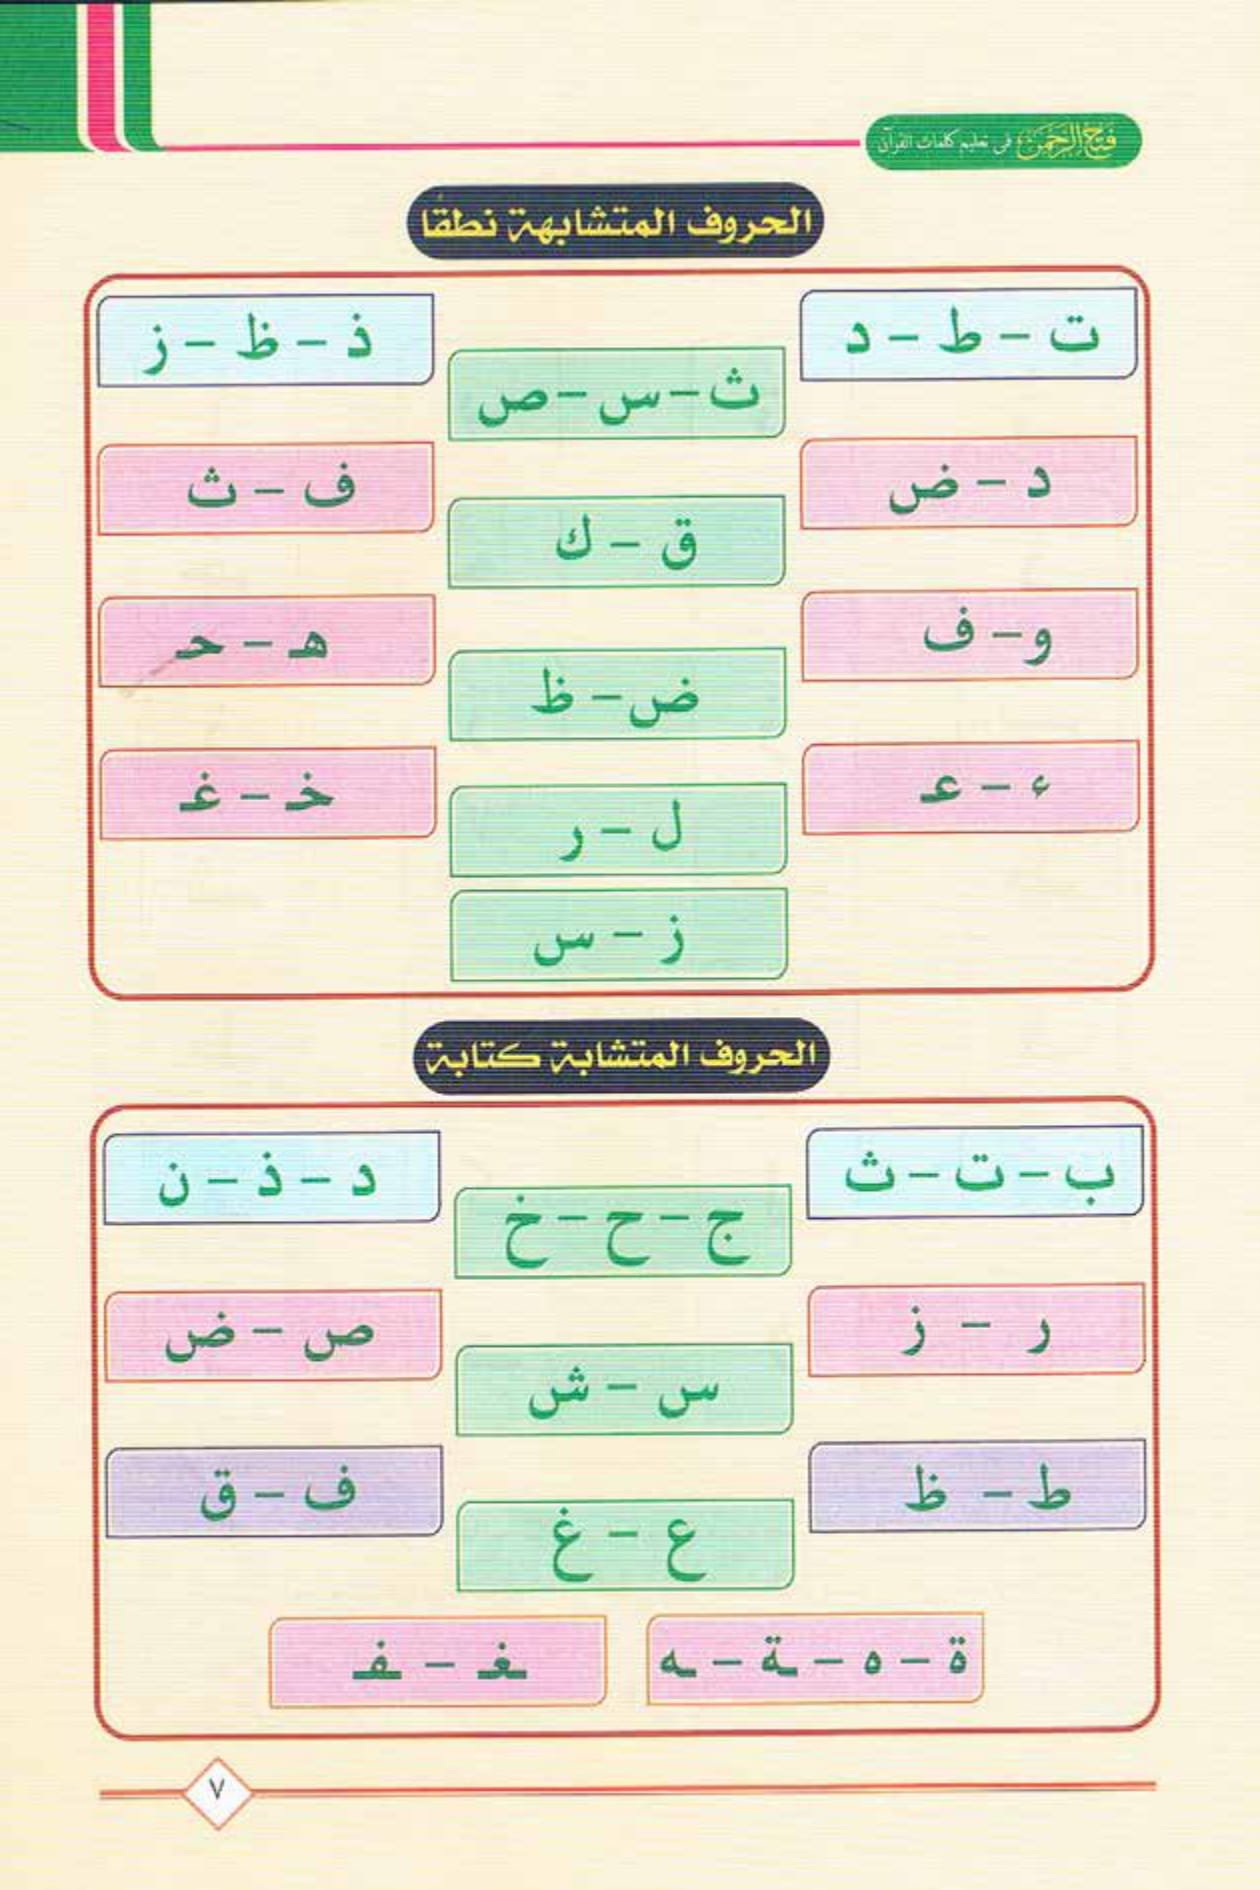 فتح الرحمن في تعليم كلمات القرآن
الحروف المتشابهة نطقًا
ت - ط - د
ث - س - ص
ذ - ظ - ز
د - ض
ق - ك
ف - ث
و - ف
ض - ظ
هـ - حـ
ء - عـ
ل - ر
خـ - غـ
ز - س
الحروف المتشابة كتابة
ب - ت - ث
ج - ح - خ
د - ذ - ن
ر - ز
س - ش
ص - ض
ط - ظ
ع - غ
ف - ق
ة - ه - ـة - ـه
ـغـ - ـفـ
٧